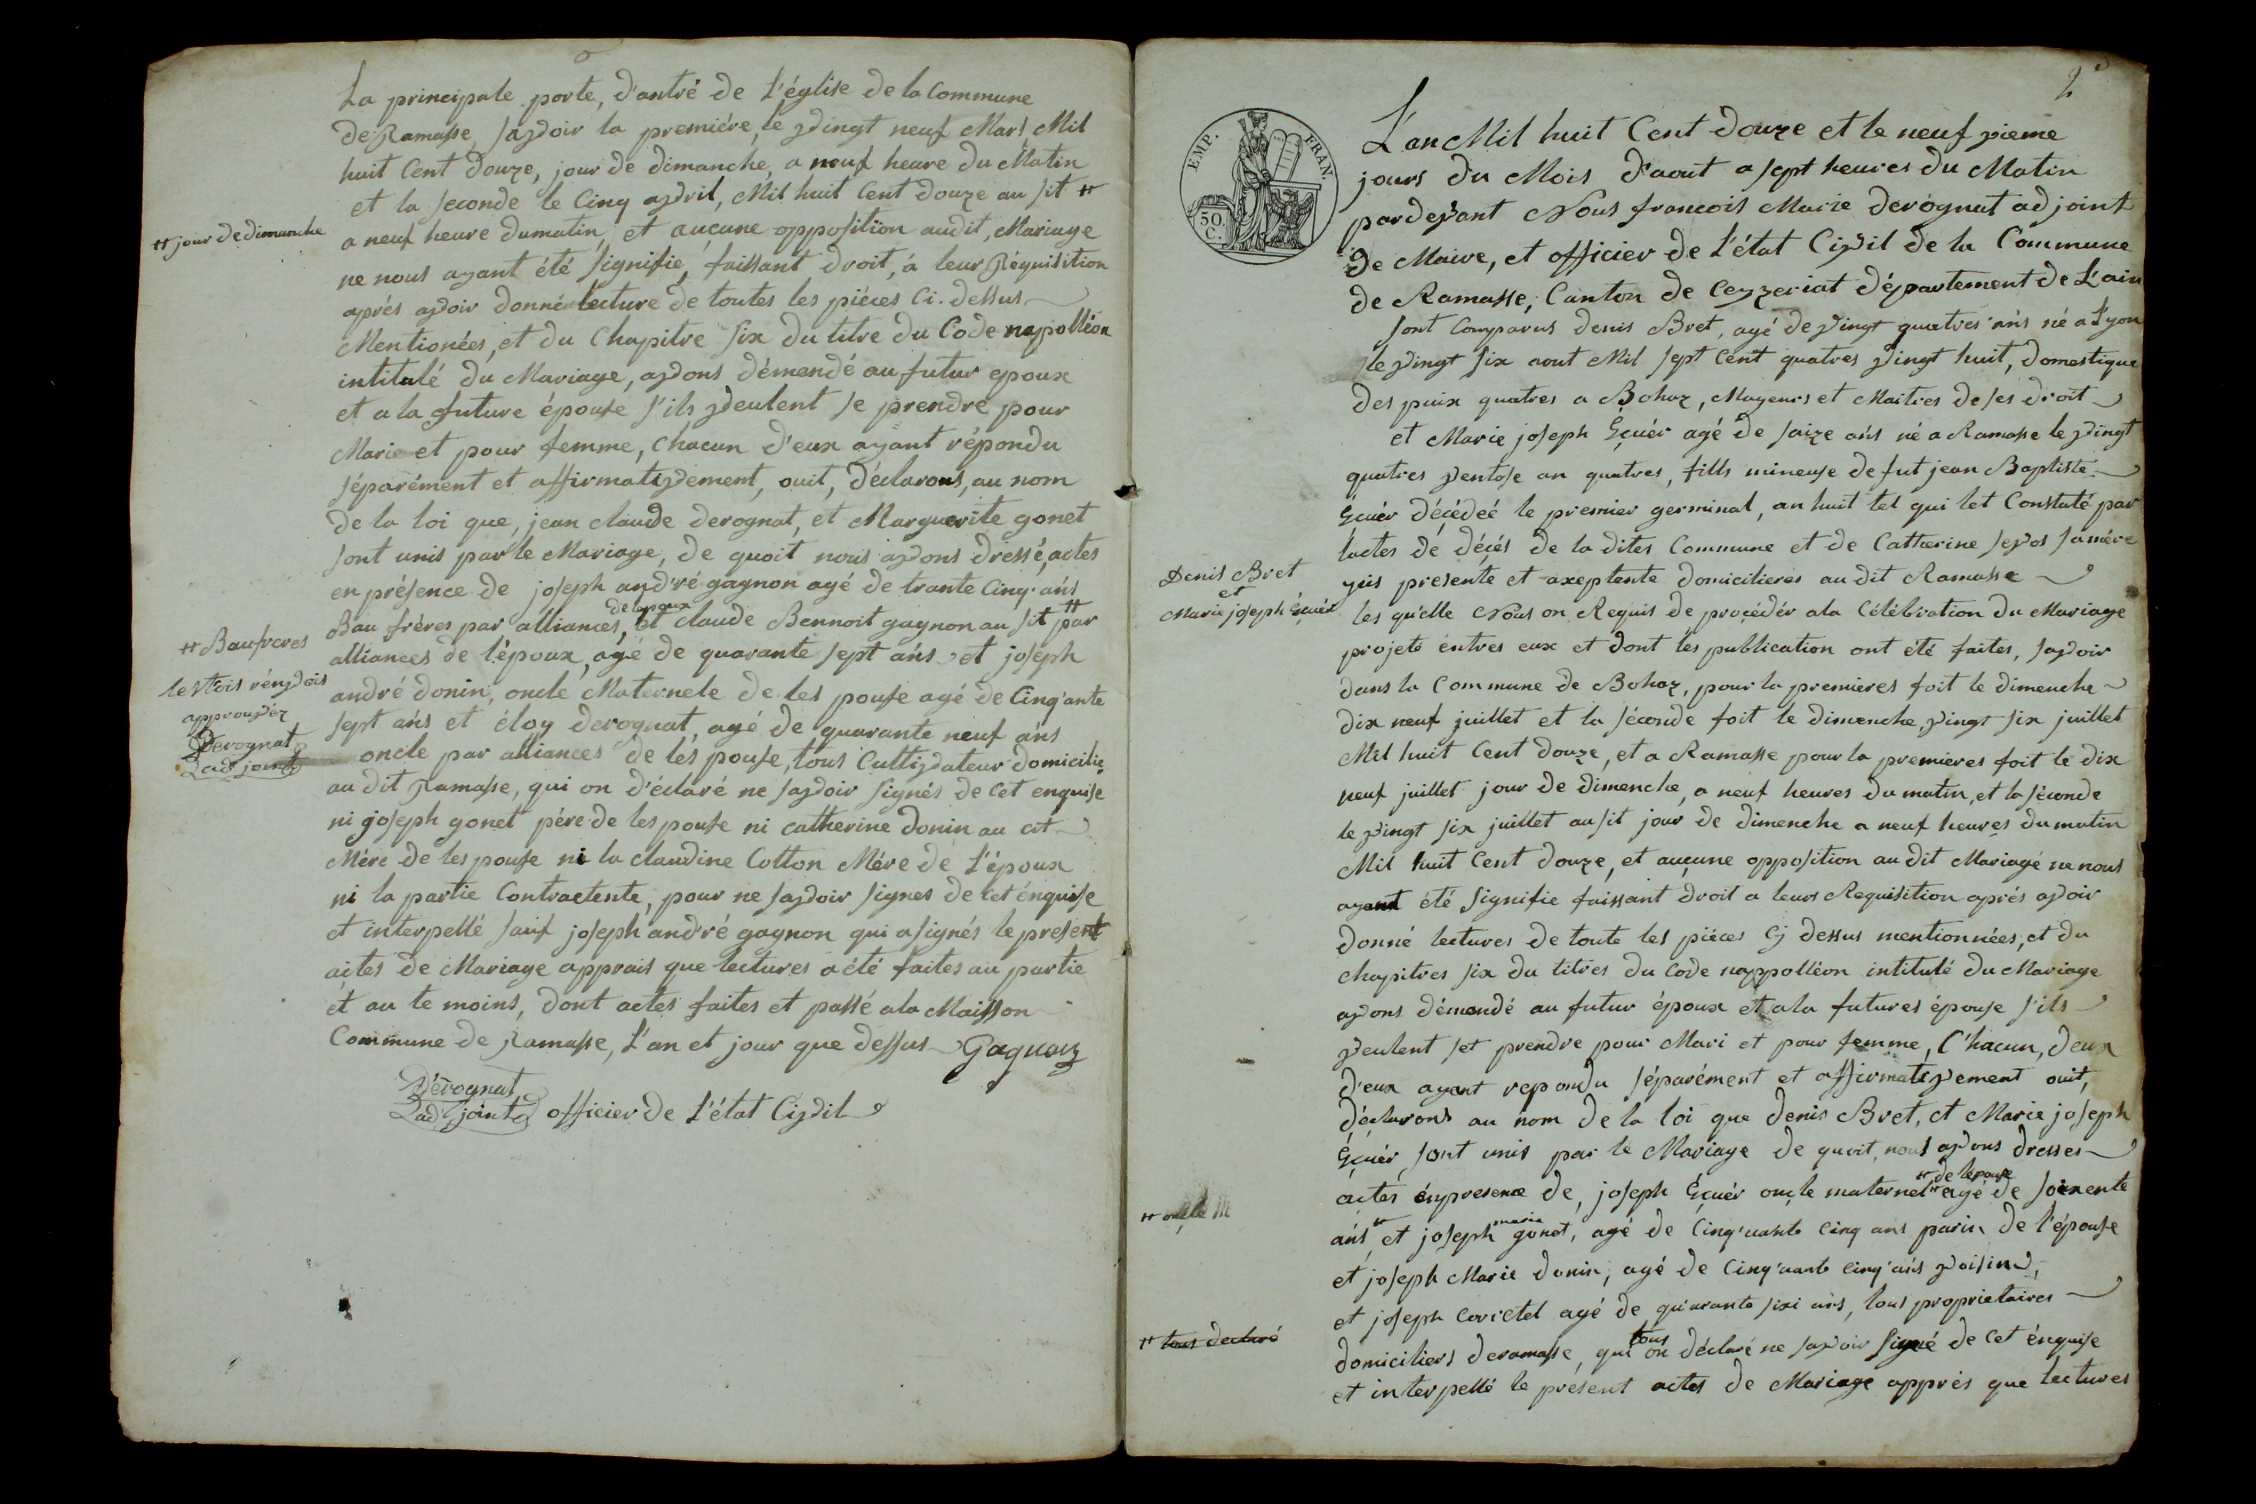 La principale porte, d'antré de L'église de la Commune
de Ramasse, savoir la premiére, le vingt neuf Mars Mil
huit Cent douze, jour de dimanche, a neuf heure du Matin
et la seconde le Cinq avril, Mil huit Cent douze au sit #
# jour de dimanche
a neuf heure dumatin, et aucune opposition audit, Mariage
ne nous ayant été signifie, faissant droit, á leur Réquisition
aprés avoir donné lecture de toutes les piéces Ci. dessus
Mentionées, et du Chapitre six du titre du Code napolléon
intitulé du Mariage, avons démendé au futur epoux
et a la future épouse s'ils veulent se prendre pour
Marie et pour femme, Chacun d'eux ayant répondu
séparément et affirmativement, ouit, déclarons, au nom
de la loi que, jean claude derognat, et Marguerite gonet
sont unis par le Mariage, de quoit nous avons dressé, actes
en présence de joseph andré gagnon agé de trante Cinq ans
de lepoux #
Bau fréres par alliances, et claude Bennoit gagnon au sit par
# Baufreres
alliances de l'époux, agé de quarante sept ans et joseph
les trois renvois
andré donin, oncle Maternele de les pouse agé de Cinq'ante
approuvéz
sept ans et éloy derognat, agé de quarante neuf ans
Derognat
oncle par alliances de les pouse, tous Cultivateur domicilié
adjoint
au dit Ramasse, qui on d'éclaré ne savoir signés de Cet enquise
ni joseph gonet pére de les pouse ni catherine donin au cit
Mére de les pouse ni la claudine Cotton Mére de L'époux
ni la partie Contractente, pour ne savoir signes de cet énquise
et interpellé sauf joseph andré gagnon qui a signés le present
actes de Mariage apprais que lectures a été faites au partie
et au te moins, dont actes faites et passé ala Maisson
Commune de Ramasse, L'an et jour que dessus Gagnon
Dérognat
adjoint officier de L'état Civil
2
EMP. FRAN.
50
C.
L'an Mil huit Cent douze et le neuf vieme
jours du Mois d'aout a sept heures du Matin
pardevant Nous francois Marie derógnat adjoint
de Maire, et officier de L'état Civil de la Commune
de Ramasse, Canton de Ceyzeriat département de L'ain
sont Comparus denis Bret, agé de vingt quatres ans né a Lyon
le vingt six aout Mil sept Cent quatres vingt huit, domestique
des puix quatres a Bohaz, Mageurs et Maitres de ses droit
et Marie joseph Écuér agé de saize ans né a Ramasse le vingt
quatres ventose an quatres, fills mineuse de fut jean Baptiste
Écuér décédeé le premier germinal, an huit tel qui let Constaté par
lactes de décés de la dites Commune et de Catherine sevos sa mére
Denis Bret
yçis presente et axeptente domicilieres au dit Ramasse
et
Marie joseph Écuér
les qu'elle Nous on Requis de procédér ala Célébration du Mariage
projeté éntres eux et dont les publication ont été faites, savoir
dans la Commune de Bohaz, pour la premieres foit le dimenche
dix neuf juillet et la séconde foit le dimenche vingt six juillet
Mil huit Cent douze, et a Ramasse pour la premieres foit le dix
neuf juillet jour de dimenche, a neuf heures du matin, et la séconde
le vingt six juillet au sit jour de dimenche a neuf heures du matin
Mil huit Cent douze, et aucune opposition au dit Mariagé ne nous
ayant été signifie faissant droit a leurs Requisition aprés avoir
donné lectures de toute les piéces Cy dessus mentionnées, et du
chapitres six du titres du Code nappolléon intitulé du Mariage
avons démendé au futur époux et ala futures épouse s'ils
veulent set prendre pour Mari et pour femme, C'hacun, deux
d'eux ayant repondu séparément et affirmativement ouit,
déclarons au nom de la loi que denis Bret, et Marie joseph
Écuér sont unis par le Mariage de quoit, nous avons dresses
# de lépouse
actes énpresence de, joseph Écuér oncle maternel # agé de soixente
# oncle M
marie
ans # et joseph gonet, agé de Cinq'uante Cinq ans parin de l'épouse
et joseph Marie donin, agé de Cinq'uante Cinq'ans voisin,
et joseph Corictel agé de qu'arante sixi ans, tous proprietaires
# tous declaré
tous
domiciliers deramasse, qui on déclaré ne savoir signé de Cet énquise
et interpellé le présent actes de Mariage apprés que lectures